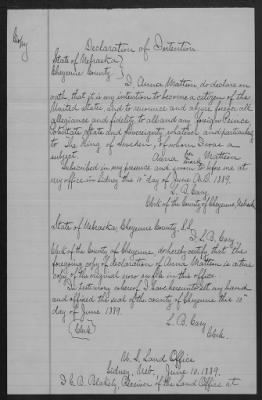 Copy
Declaration of Intention
State of Nebraska }
Cheyenne County }
I, Anna Mattson, do declare on
oath that it is my intention to become a citizen of the
United States, and to renounce and abjure forever all
allegiance and fidelity to all and any foreign Prince
Potentate State and Sovereignty whatever and particularly
to The King of Sweden, of whom I was a
subject.
Anna her mark Mattson
Subscribed in my presence and sworn to before me at
my office in Sidney this 10" day of June A.D. 1889.
L. B. Cary
Clerk of the County of Cheyenne, Nebraska
State of Nebraska, Cheyenne County, S.S.
I L. B. Cary,
Clerk of the County of Cheyenne, do hereby certify that the
foregoing copy of declaration of Anna Mattson is a true
copy of the original now on file in this office.
In testimony whereof I have hereunto set my hand
and affixed the seal of the county of Cheyenne this 10"
day of June 1889.
L. B. Cary
Clerk.
U. S. Land Office
Sidney, Neb. June 10. 1889.
Receiver of the Land Office at